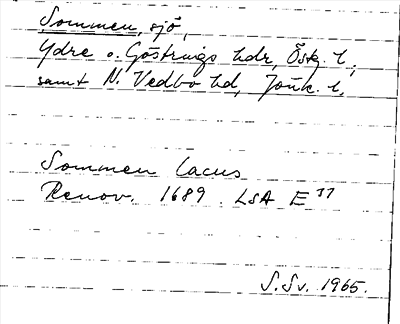 Sommen, sjö,
Ydre o. Göstrings hdr, Östg. l,
samt N. Vedbo hd, Jönk. l,
Sommen Lacus
Renov. 1689 LSA E 37
S. Sv. 1965.